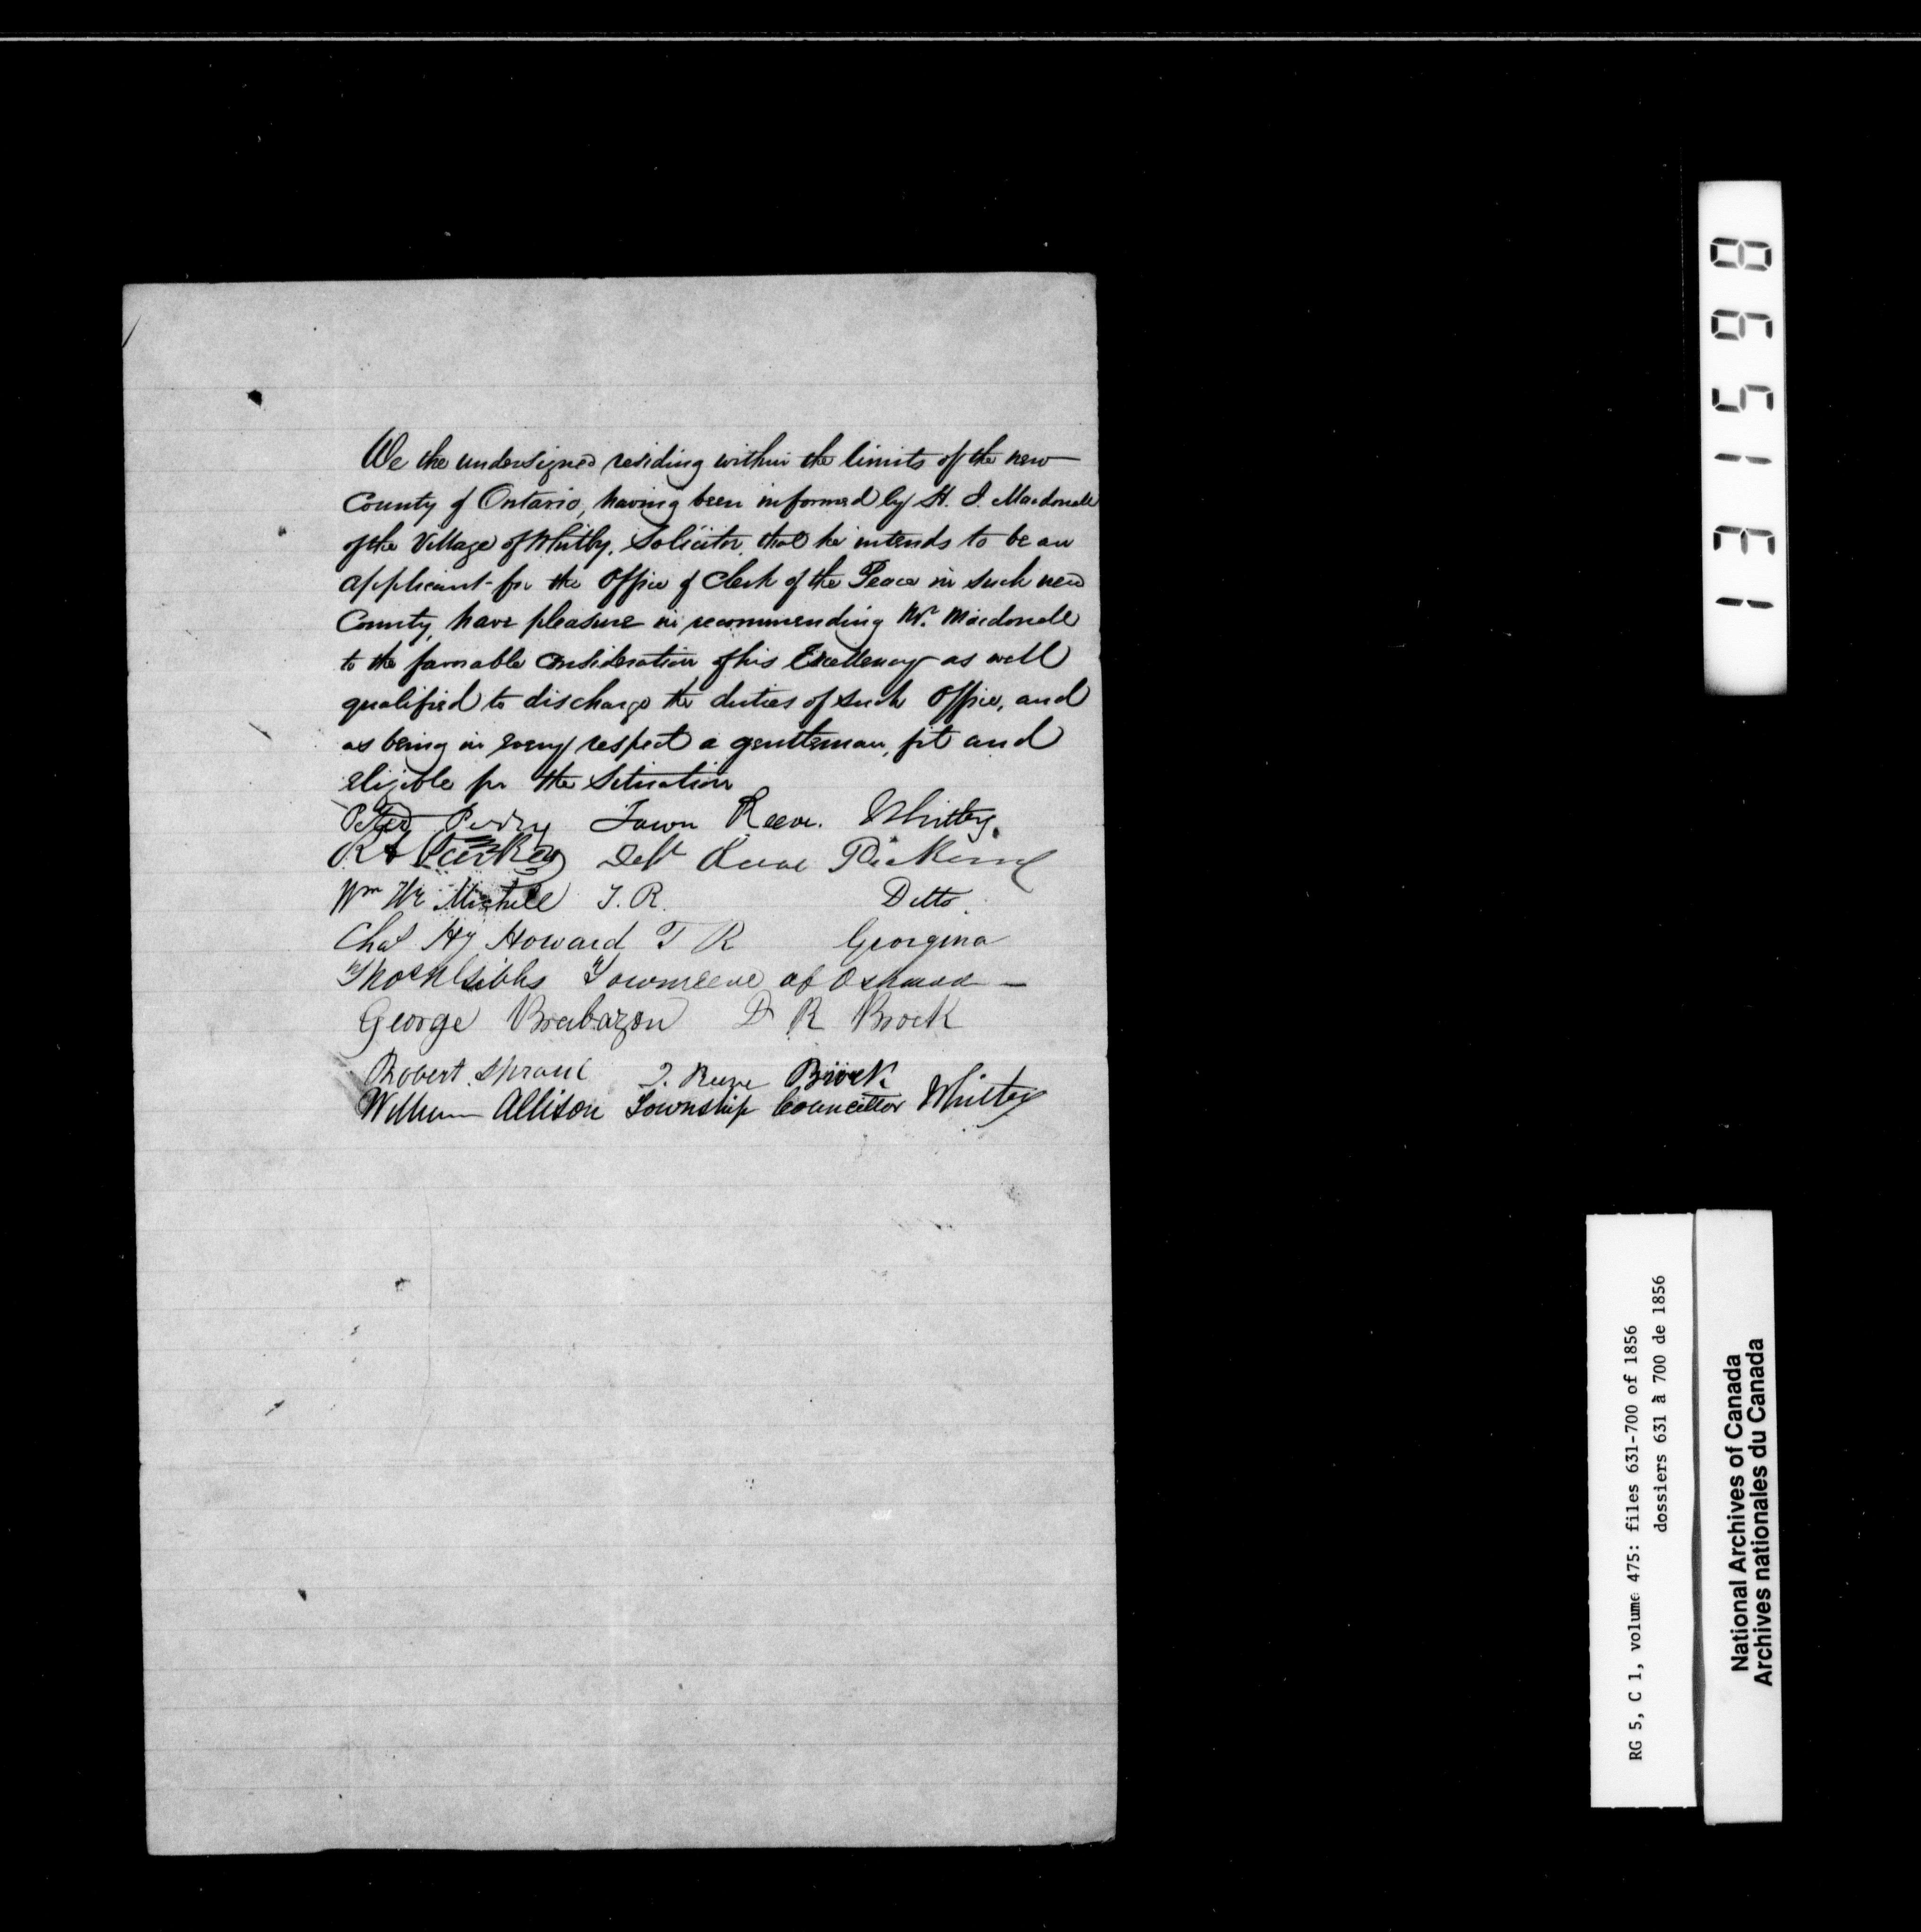 We the undersigned residing within the limits of the new
County of Ontario, having been informed by H. J. Macdonell
of the Village of Whitby, Solicitor, that he intends to be an
applicant for the Office of Clerk of the Peace in such new
County, have pleasure in recommending Mr. Macdonell
to the favorable consideration of his Excellency as well
qualified to discharge the duties of such Office, and
as being in every respect a gentleman, fit and
eligible for the Situation
Peter Perry Town Reeve. Whitby.
Dept Reeve Pickering
Wm H. Michell T. R. Ditto.
Chas Hy Howard T R Georgina
Thos N Gibbs Townreeve of Oshawa —
George Brabazon D R Brock
Robert Sproul T. Reeve Brock
William Allison Township Councillor Whitby
131598
RG 5, C 1, volume 475: files 631-700 of 1856
dossiers 631 à 700 de 1856
National Archives of Canada
Archives nationales du Canada